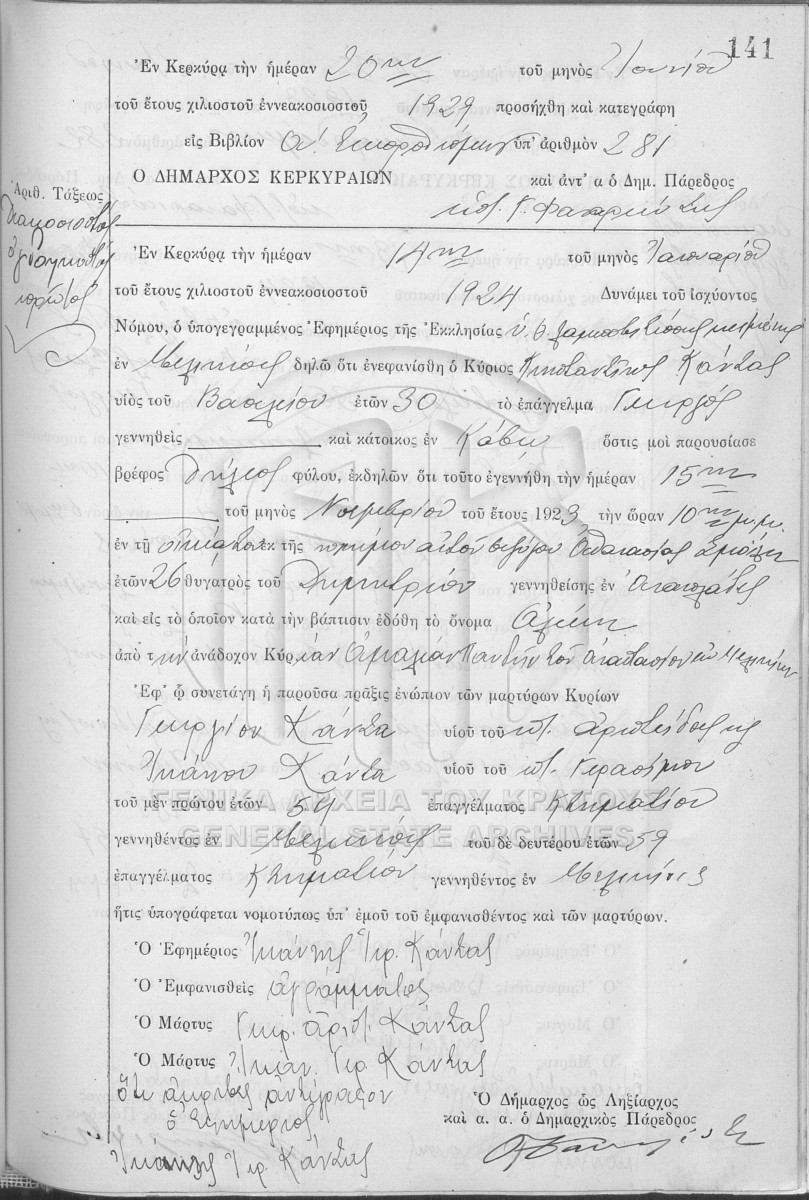 141
Ἐν Κερκύρᾳ τὴν ἡμέραν 20ην τοῦ μηνὸς Ἰουνίου
τοῦ ἔτους χιλιοστοῦ ἐννεακοσιοστοῦ 1929 προσήχθη καὶ κατεγράφη
εἰς Βιβλίον ὑπ' ἀριθμὸν 281
Ο ΔΗΜΑΡΧΟΣ ΚΕΡΚΥΡΑΙΩΝ καὶ ἀντ' α ὁ Δημ. Πάρεδρος
Ἀριθ. Τάξεως
διακοσιοστὸς
ὀγδοηκοστὸς
πρῶτος
Ἐν Κερκύρᾳ τὴν ἡμέραν 14ην τοῦ μηνὸς Ἰανουαρίου
τοῦ ἔτους χιλιοστοῦ ἐννεακοσιοστοῦ 1924 Δυνάμει τοῦ ἰσχύοντος
Νόμου, ὁ ὑπογεγραμμένος Ἐφημέριος τῆς Ἐκκλησίας
ἐν Μελικίοις δηλῶ ὅτι ἐνεφανίσθη ὁ Κύριος Κωνσταντῖνος Κάντας
υἱὸς τοῦ Βασιλείου ἐτῶν 30 τὸ ἐπάγγελμα Γεωργός
γεννηθεὶς καὶ κάτοικος ἐν Κάβῳ ὅστις μοὶ παρουσίασε
βρέφος θήλεος φύλου, ἐκδηλῶν ὅτι τοῦτο ἐγεννήθη τὴν ἡμέραν 15ην
τοῦ μηνὸς Νοεμβρίου τοῦ ἔτους 1923 τὴν ὥραν 10ην μ.μ.
ἐν τῇ οἰκίᾳ του ἐκ τῆς νομίμου αὐτοῦ συζύγου Ἀθανασίας
ἐτῶν 26 θυγατρὸς τοῦ Δημητρίου γεννηθείσης ἐν
καὶ εἰς τὸ ὁποῖον κατὰ τὴν βάπτισιν ἐδόθη τὸ ὄνομα
ἀπὸ τὴν ἀνάδοχον Κυρίαν Ἀμαλίαν τοῦ
Ἐφ' ᾧ συνετάγη ἡ παροῦσα πρᾶξις ἐνώπιον τῶν μαρτύρων Κυρίων
Γεωργίου Κάντα υἱοῦ τοῦ ποτ. Ἀριστείδους κ
Ἰωάννου Κάντα υἱοῦ τοῦ ποτ. Γερασίμου
τοῦ μὲν πρώτου ἐτῶν 54 ἐπαγγέλματος Κτηματίου
ΓΕΝΙΚΑ ΑΡΧΕΙΑ ΤΟΥ ΚΡΑΤΟΥΣ
GENERAL STATE ARCHIVES
γεννηθέντος ἐν Μελικίοις τοῦ δὲ δευτέρου ἐτῶν 59
ἐπαγγέλματος Κτηματίου γεννηθέντος ἐν Μελικίοις
ἥτις ὑπογράφεται νομοτύπως ὑπ' ἐμοῦ τοῦ ἐμφανισθέντος καὶ τῶν μαρτύρων.
Ὁ Ἐφημέριος Ἰωάννης Ἱερ. Κάντας
Ὁ Ἐμφανισθεὶς ἀγράμματος
Ὁ Μάρτυς Γεωρ. Ἀριστ. Κάντας
Ὁ Μάρτυς Ἰωάν. Γερ. Κάντας
Ὅτι ἀκριβὲς ἀντίγραφον
ὁ Ἐφημέριος
Ἰωάννης Ἱερ. Κάντας
Ὁ Δήμαρχος ὡς Ληξίαρχος
καὶ α. α. ὁ Δημαρχικὸς Πάρεδρος